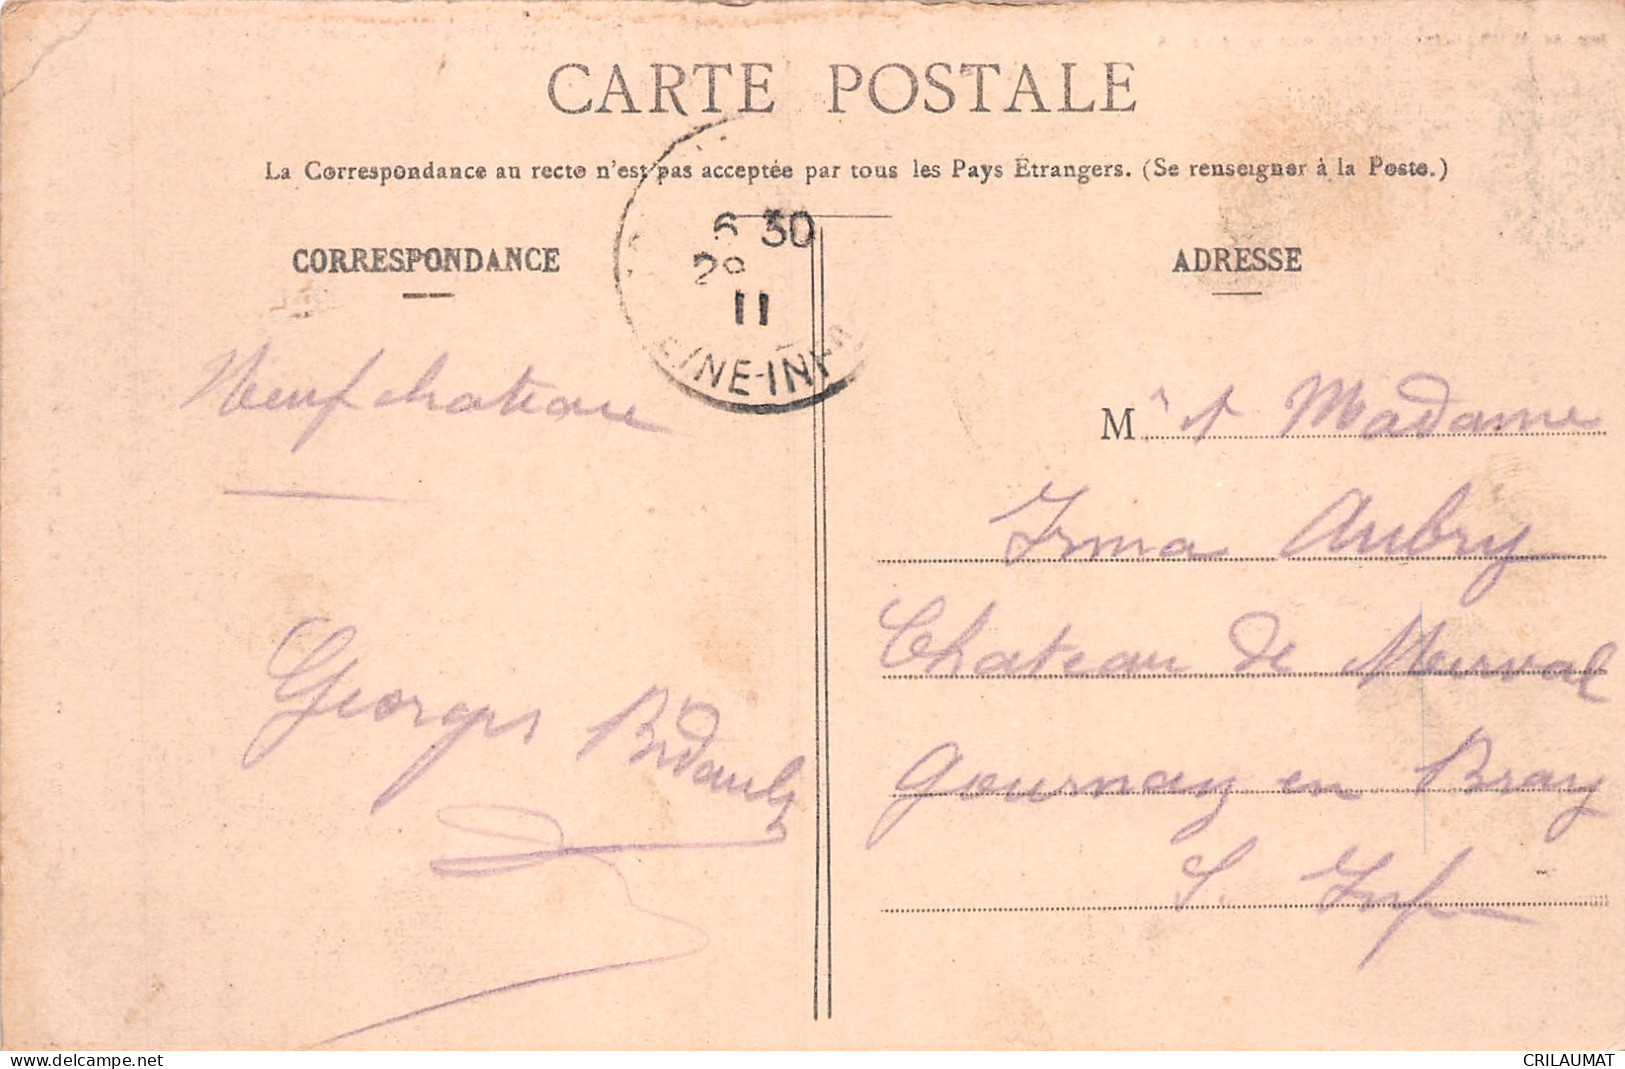 CARTE POSTALE
La Correspondance au recto n'est pas acceptée par tous les Pays Étrangers. (Se renseigner à la Poste.)
6 30
11
INE-INF
CORRESPONDANCE
ADRESSE
Neufchateau
Georges Bidault
M et Madame
Irma Aubry
Chateau de Merval
Gournay en Bray
S. Infre
delcampe.net
CRILAUMAT